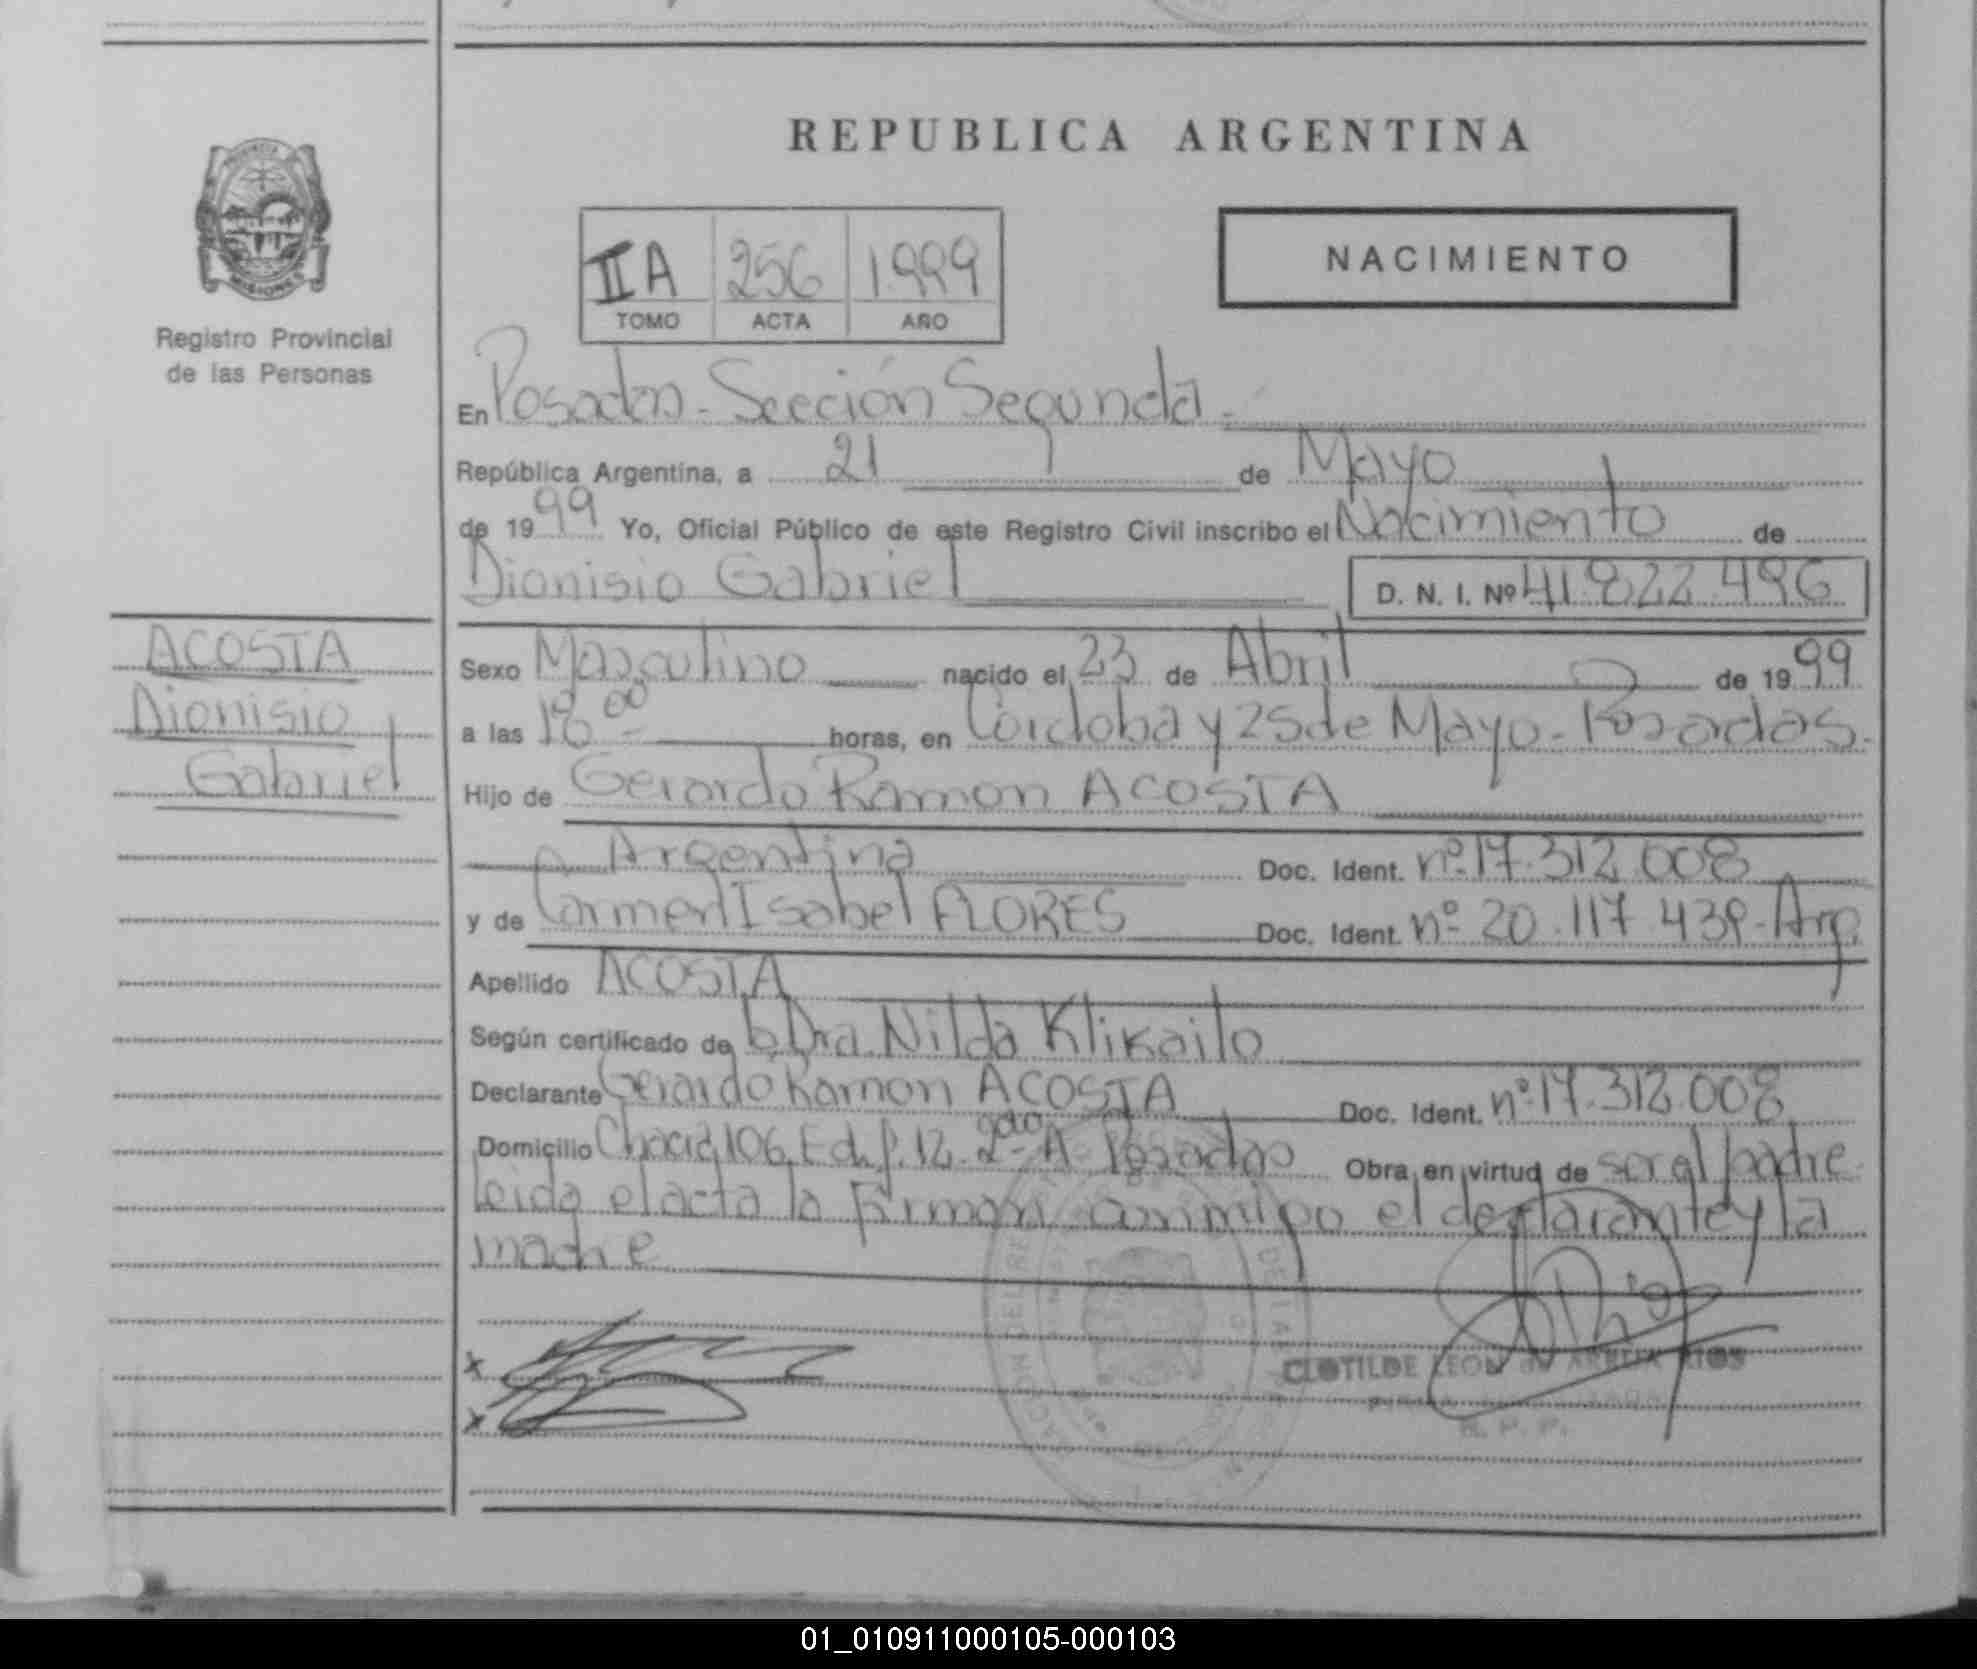 REPUBLICA ARGENTINA
PROVINCIA
MISIONES
Registro Provincial
de las Personas
IIA 256 1.999
TOMO ACTA AÑO
NACIMIENTO
En Posadas - Sección Segunda -
República Argentina, a 21 de Mayo
de 1999 Yo, Oficial Público de este Registro Civil inscribo el Nacimiento de
Dionisio Gabriel D. N. I. Nº 41.822.496
ACOSTA
Dionisio
Gabriel
Sexo Masculino nacido el 23 de Abril de 1999
a las 18 00 - horas, en Córdoba y 25 de Mayo - Posadas.
Hijo de Gerardo Ramon ACOSTA
Argentina Doc. Ident. nº 17.312.008
y de Carmen Isabel FLORES Doc. Ident. nº 20.117.439 - Arg.
Apellido ACOSTA
Según certificado de la Dra. Nilda Klikailo
Declarante Gerardo Ramon ACOSTA Doc. Ident. nº 17.312.008
Domicilio Chacra 106 Edif. 12 2do A Posadas Obra en virtud de ser el padre
Leida el acta la Firman conmigo el declarante y la
madre
x
x
CLOTILDE LEON de RIOS
R. P. P.
01_010911000105-000103